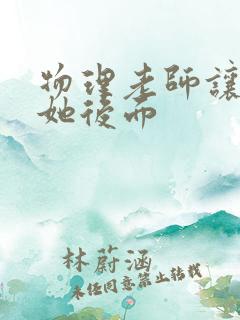 物理老師讓
她後而
林蔚涵
未经同意禁止转载